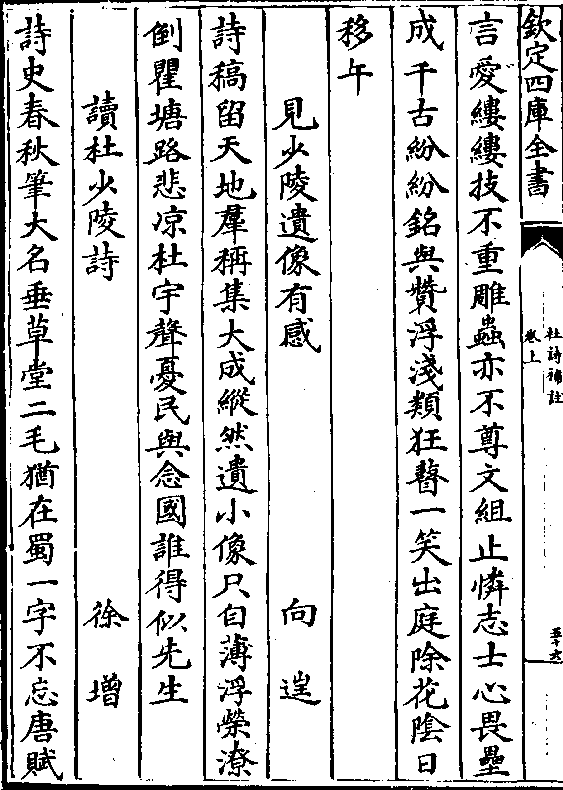 欽定四庫全書
杜詩補註
卷上
五十六
言愛縷縷技不重雕蟲亦不尊文組止憐志士心畏壘
成千古紛紛銘與贊浮淺類狂瞽一笑出庭除花陰日
移午
見少陵遺像有感 向逞
詩稿留天地羣稱集大成縱然遺小像只自薄浮榮潦
倒瞿塘路悲凉杜宇聲憂民與念國誰得似先生
讀杜少陵詩 徐增
詩史春秋筆大名垂草堂二毛猶在蜀一字不忘唐賦